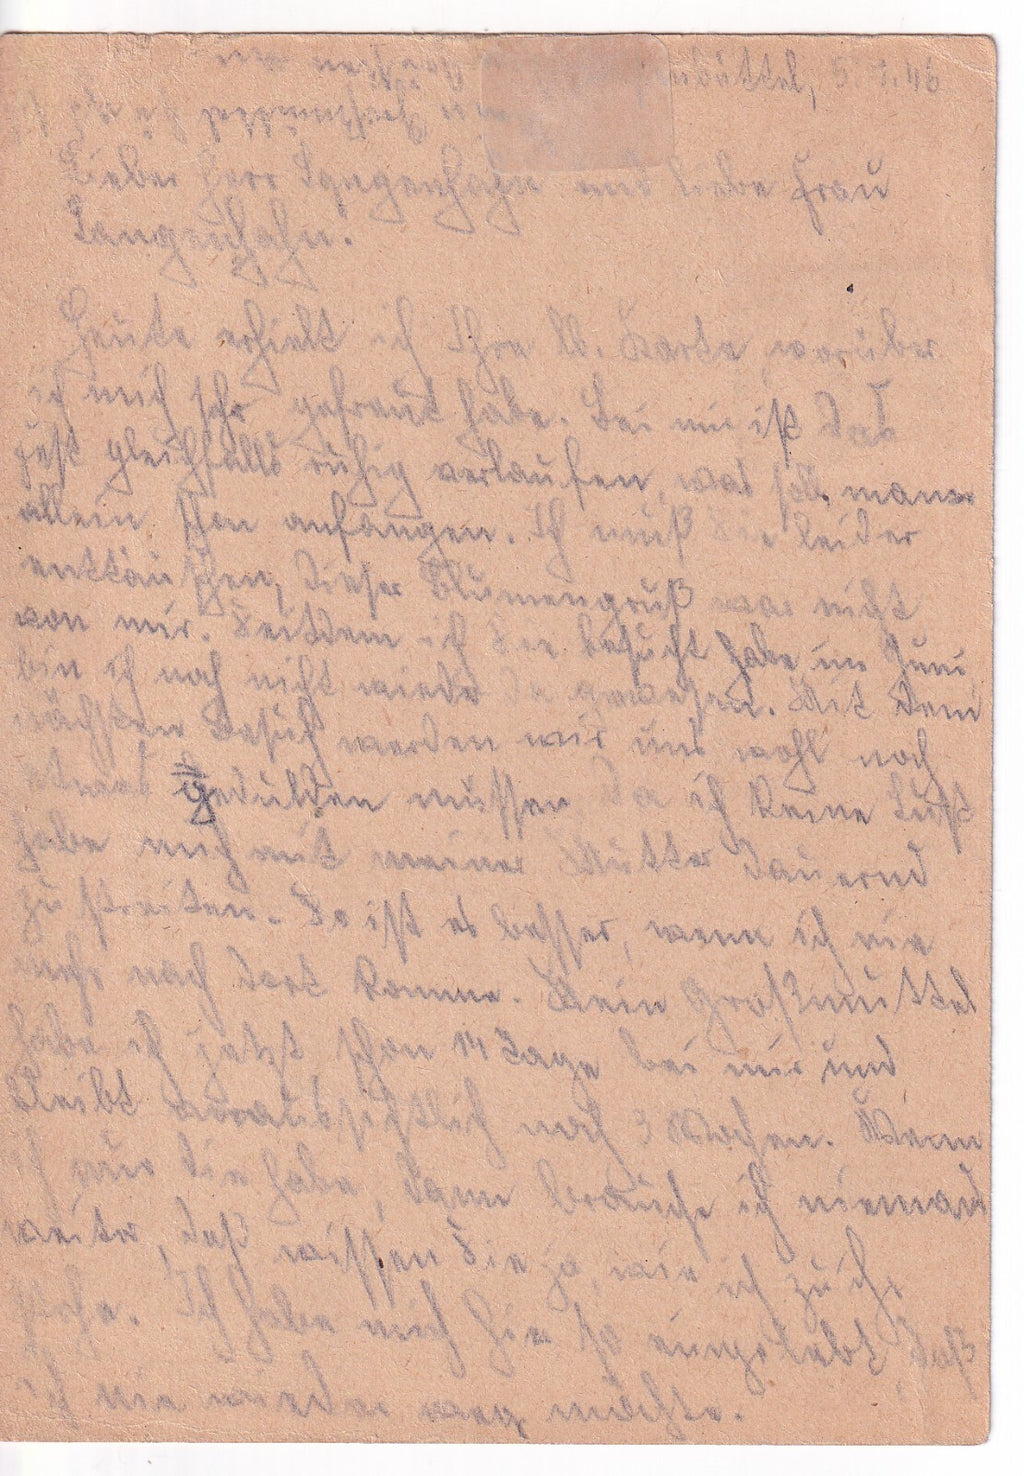 büttel, 5.1.46
Lieber Herr Langenhahn und liebe Frau
Langenhahn.
Heute erhielt ich Ihre lb. Karte, worüber
ich mich sehr gefreut habe. Bei mir ist das
Fest gleichfalls ruhig verlaufen, was soll man
allein schon anfangen. Ich muß Sie leider
enttäuschen, dieser Blumengruß war nicht
von mir. Seitdem ich Sie besucht habe im Juni
bin ich noch nicht wieder da gewesen. Mit dem
nächsten Besuch werden wir uns wohl noch
etwas gedulden müssen, da ich keine Lust
habe mich mit meiner Mutter dauernd
zu streiten. So ist es besser, wenn ich nie
mehr nach dort komme. Mein Großmuttel
habe ich jetzt schon 14 Tage bei mir und
bleibt voraussichtlich noch 3 Wochen. Wenn
ich nur die habe, dann brauche ich niemand
weiter, daß wissen Sie ja, wie ich zu ihr
stehe. Ich habe mich hier so eingelebt, daß
ich nie wieder weg möchte.